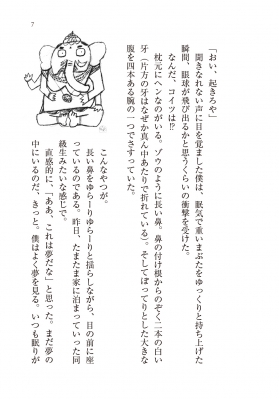 7
「おい、起きろや」
聞きなれない声に目を覚ました僕は、眠気で重いまぶたをゆっくりと持ち上げた
瞬間、眼球が飛び出るかと思うくらいの衝撃を受けた。
なんだ、コイツは!?
枕元にヘンなのがいる。ゾウのように長い鼻。鼻の付け根からのぞく二本の白い
牙（片方の牙はなぜか真ん中あたりで折れている）。そしてぽってりとした大きな
腹を四本ある腕の一つでさすっていた。
こんなやつが。
長い鼻をゆらーりゆらーりと揺らしながら、目の前に座
っているのである。昨日、たまたま家に泊まっていった同
級生みたいな感じで。
直感的に、「ああ、これは夢だな」と思った。まだ夢の
中にいるのだ、きっと。僕はよく夢を見る。いつも眠りが